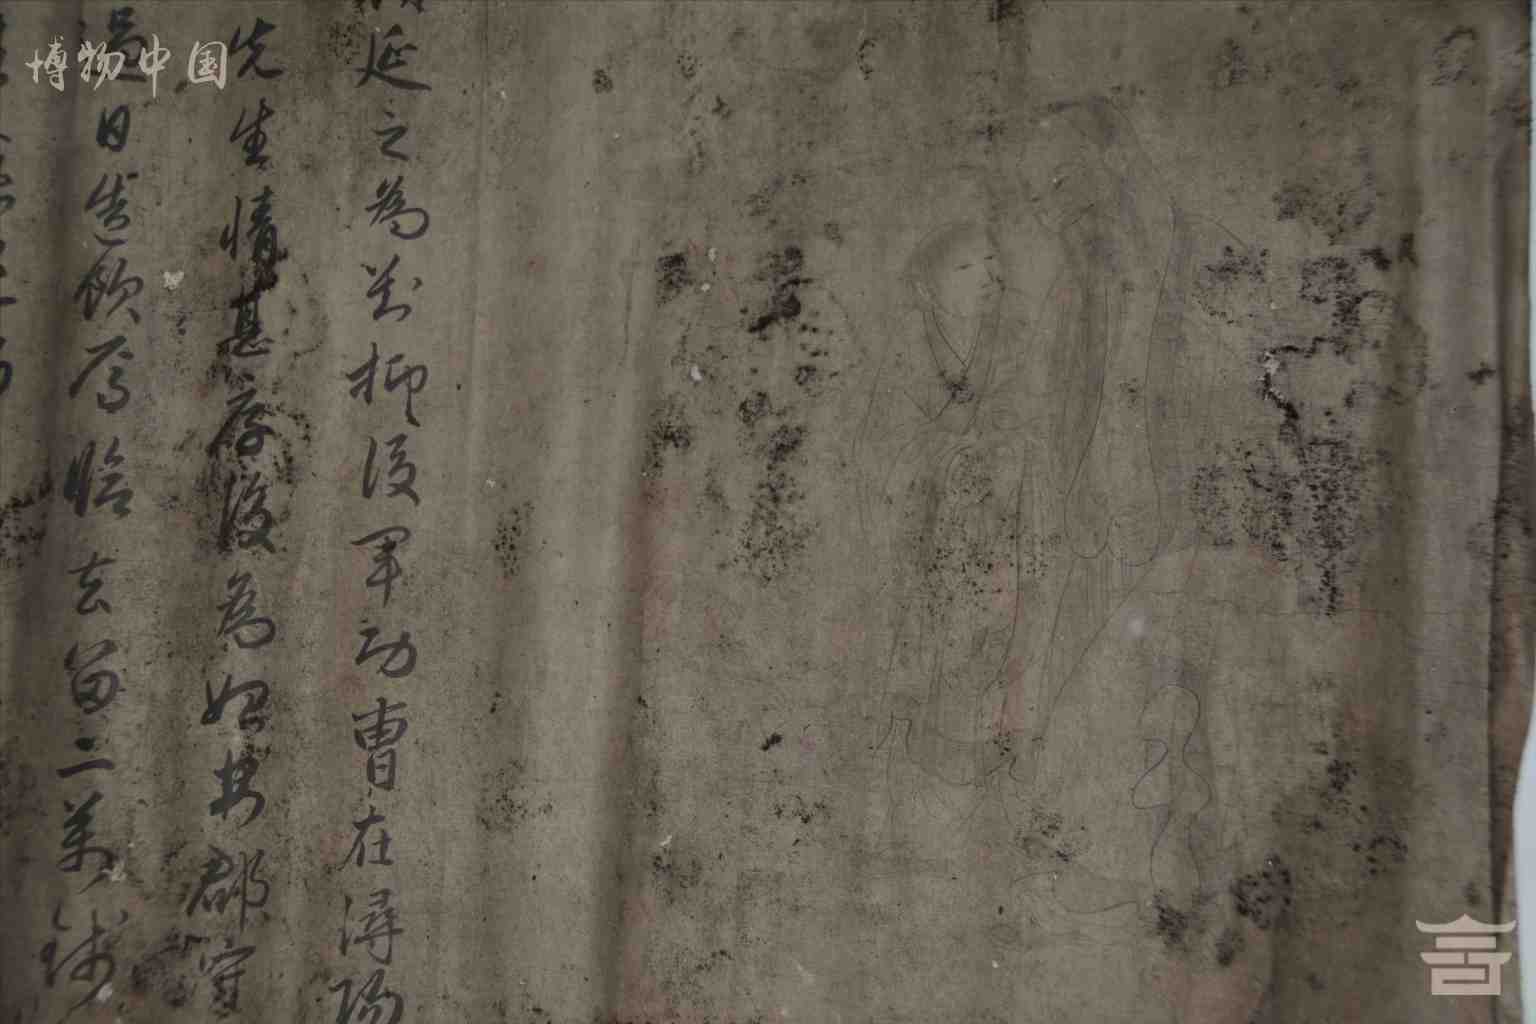 延之為劉柳後軍功曹在潯陽
先生情甚厚後為始安郡守
過日造飲焉臨去留二萬錢
博物中国